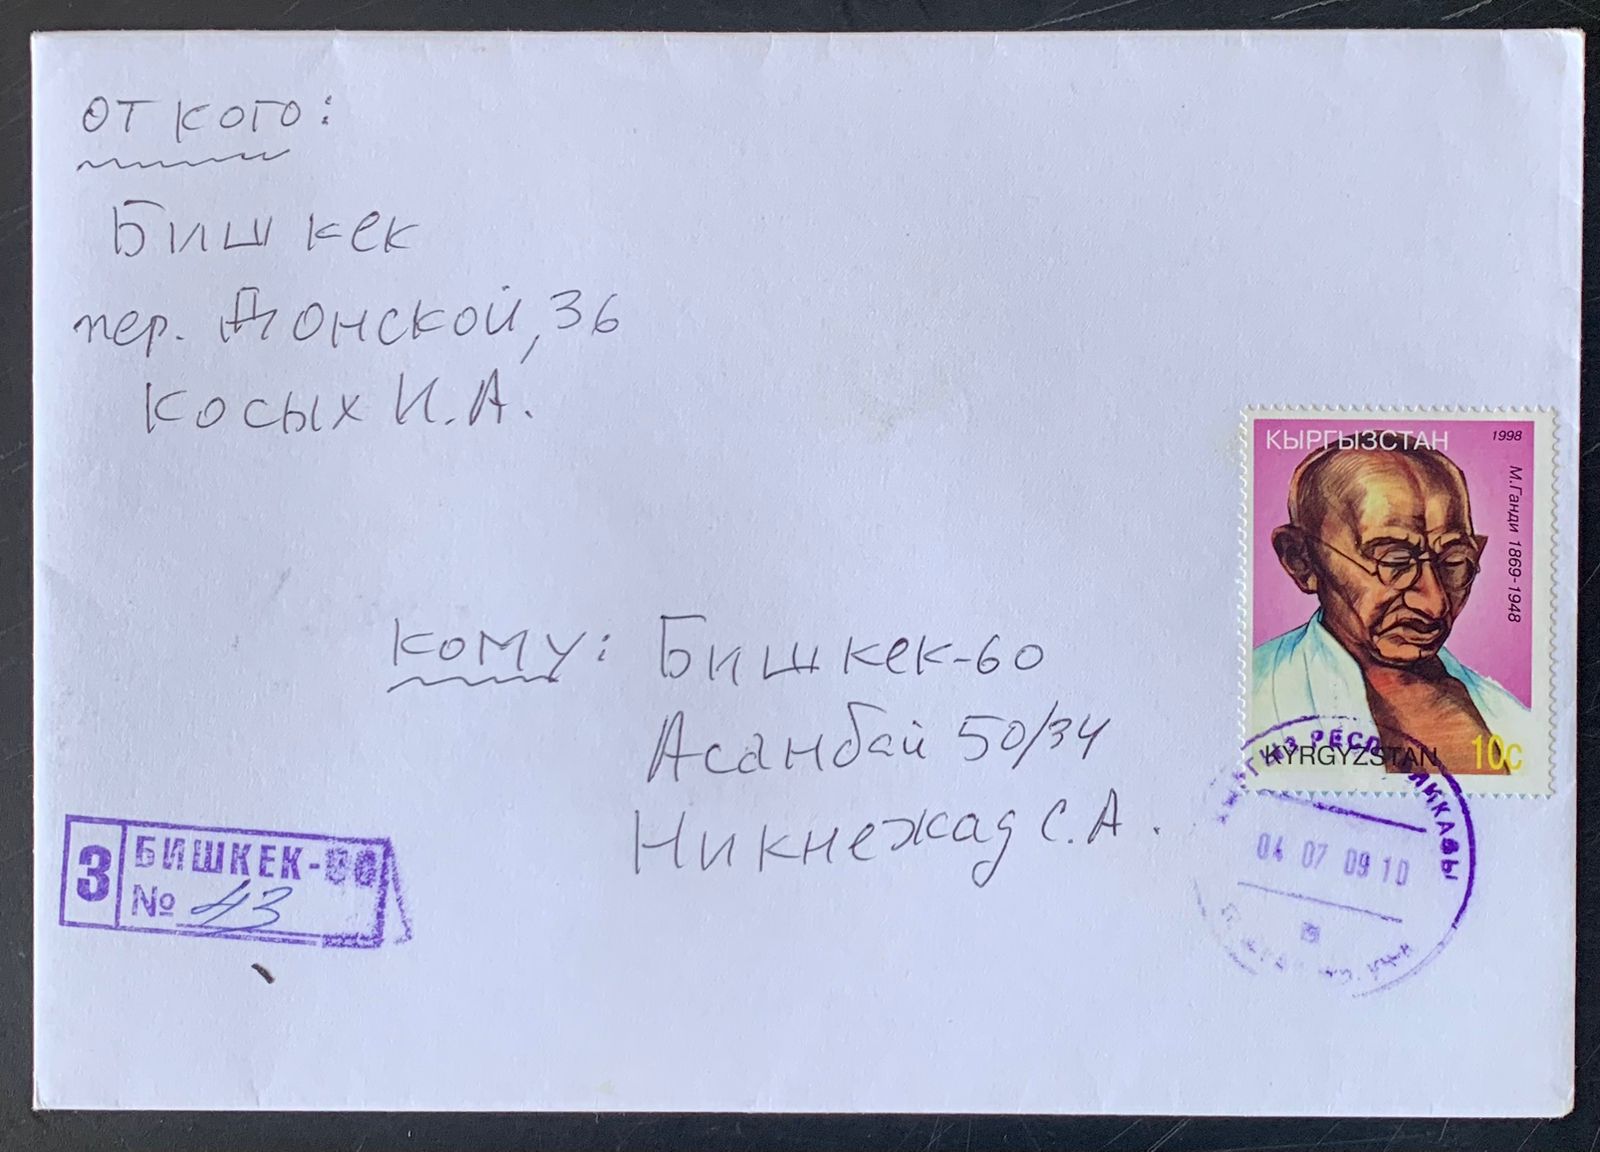 от кого:
Бишкек
пер. Донской, 36
Косых И.А.
КЫРГЫЗСТАН
1998
М.Ганди 1869-1948
KYRGYZSTAN
10c
кому: Бишкек-60
Асанбай 50/34
Никнежад С.А.
З
БИШКЕК-
№ 43
04 07 09 10